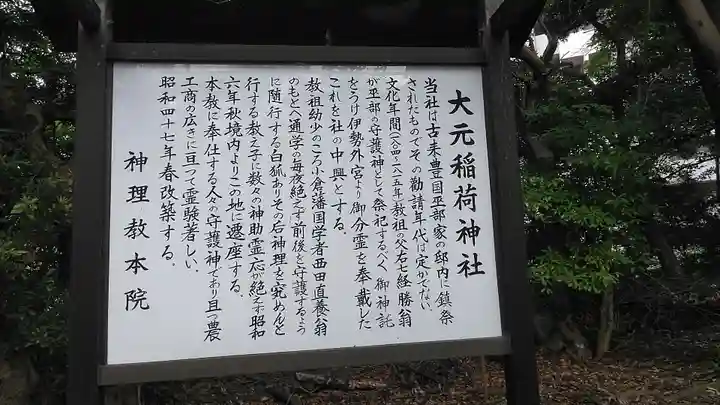 大元稲荷神社
当社は古来豊国巫部家の邸内に鎮祭
されたものでその勧請年代は定かでない
文化年間(一八〇四〜一八一五年)教祖の父右七経勝翁
が巫部の守護神として祭祀するべく御神託
をうけ伊勢外宮より御分霊を奉戴した
これを社の中興とする。
教祖幼少のころ小倉藩国学者西田直養翁
のもとへ通学の毎夜絶えず前後を守護するよう
に随行する白狐ありその后神理を究めんと
行する教え子に数々の神助霊応が絶えず昭和
六年秋境内よりこの地に遷座する。
本教に奉仕する人々の守護神であり且つ農
工商の広きに亘って霊験著しい。
昭和四十七年春改築する。
神理教本院